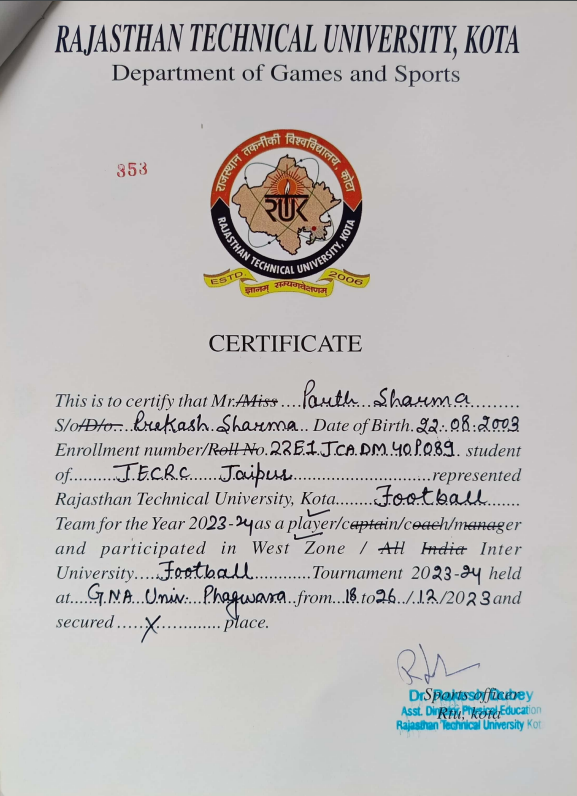 RAJASTHAN TECHNICAL UNIVERSITY, KOTA
Department of Games and Sports
353
राजस्थान तकनीकी विश्वविद्यालय, कोटा
RTU
RAJASTHAN TECHNICAL UNIVERSITY, KOTA
ESTD. 2006
ज्ञानम् सम्यगवेक्षणम्
CERTIFICATE
This is to certify that Mr./Miss ....Parth Sharma.........
S/o/D/o... Prakash Sharma.. Date of Birth. 22.08.2003
Enrollment number/Roll No.22E1JCADM40P089. student
of..........JECRC......Jaipur..............................represented
Rajasthan Technical University, Kota........Football.......
Team for the Year 2023-24 as a player/captain/coach/manager
and participated in West Zone / All India Inter
University.....Football.............Tournament 2023-24 held
at....G.N.A. Univ. Phagwara..from..18.to26../.12/2023 and
secured .....X.............. place.
Sports officer
Asst. Director Physical Education
Rtu, kota
Rajasthan Technical University Kot